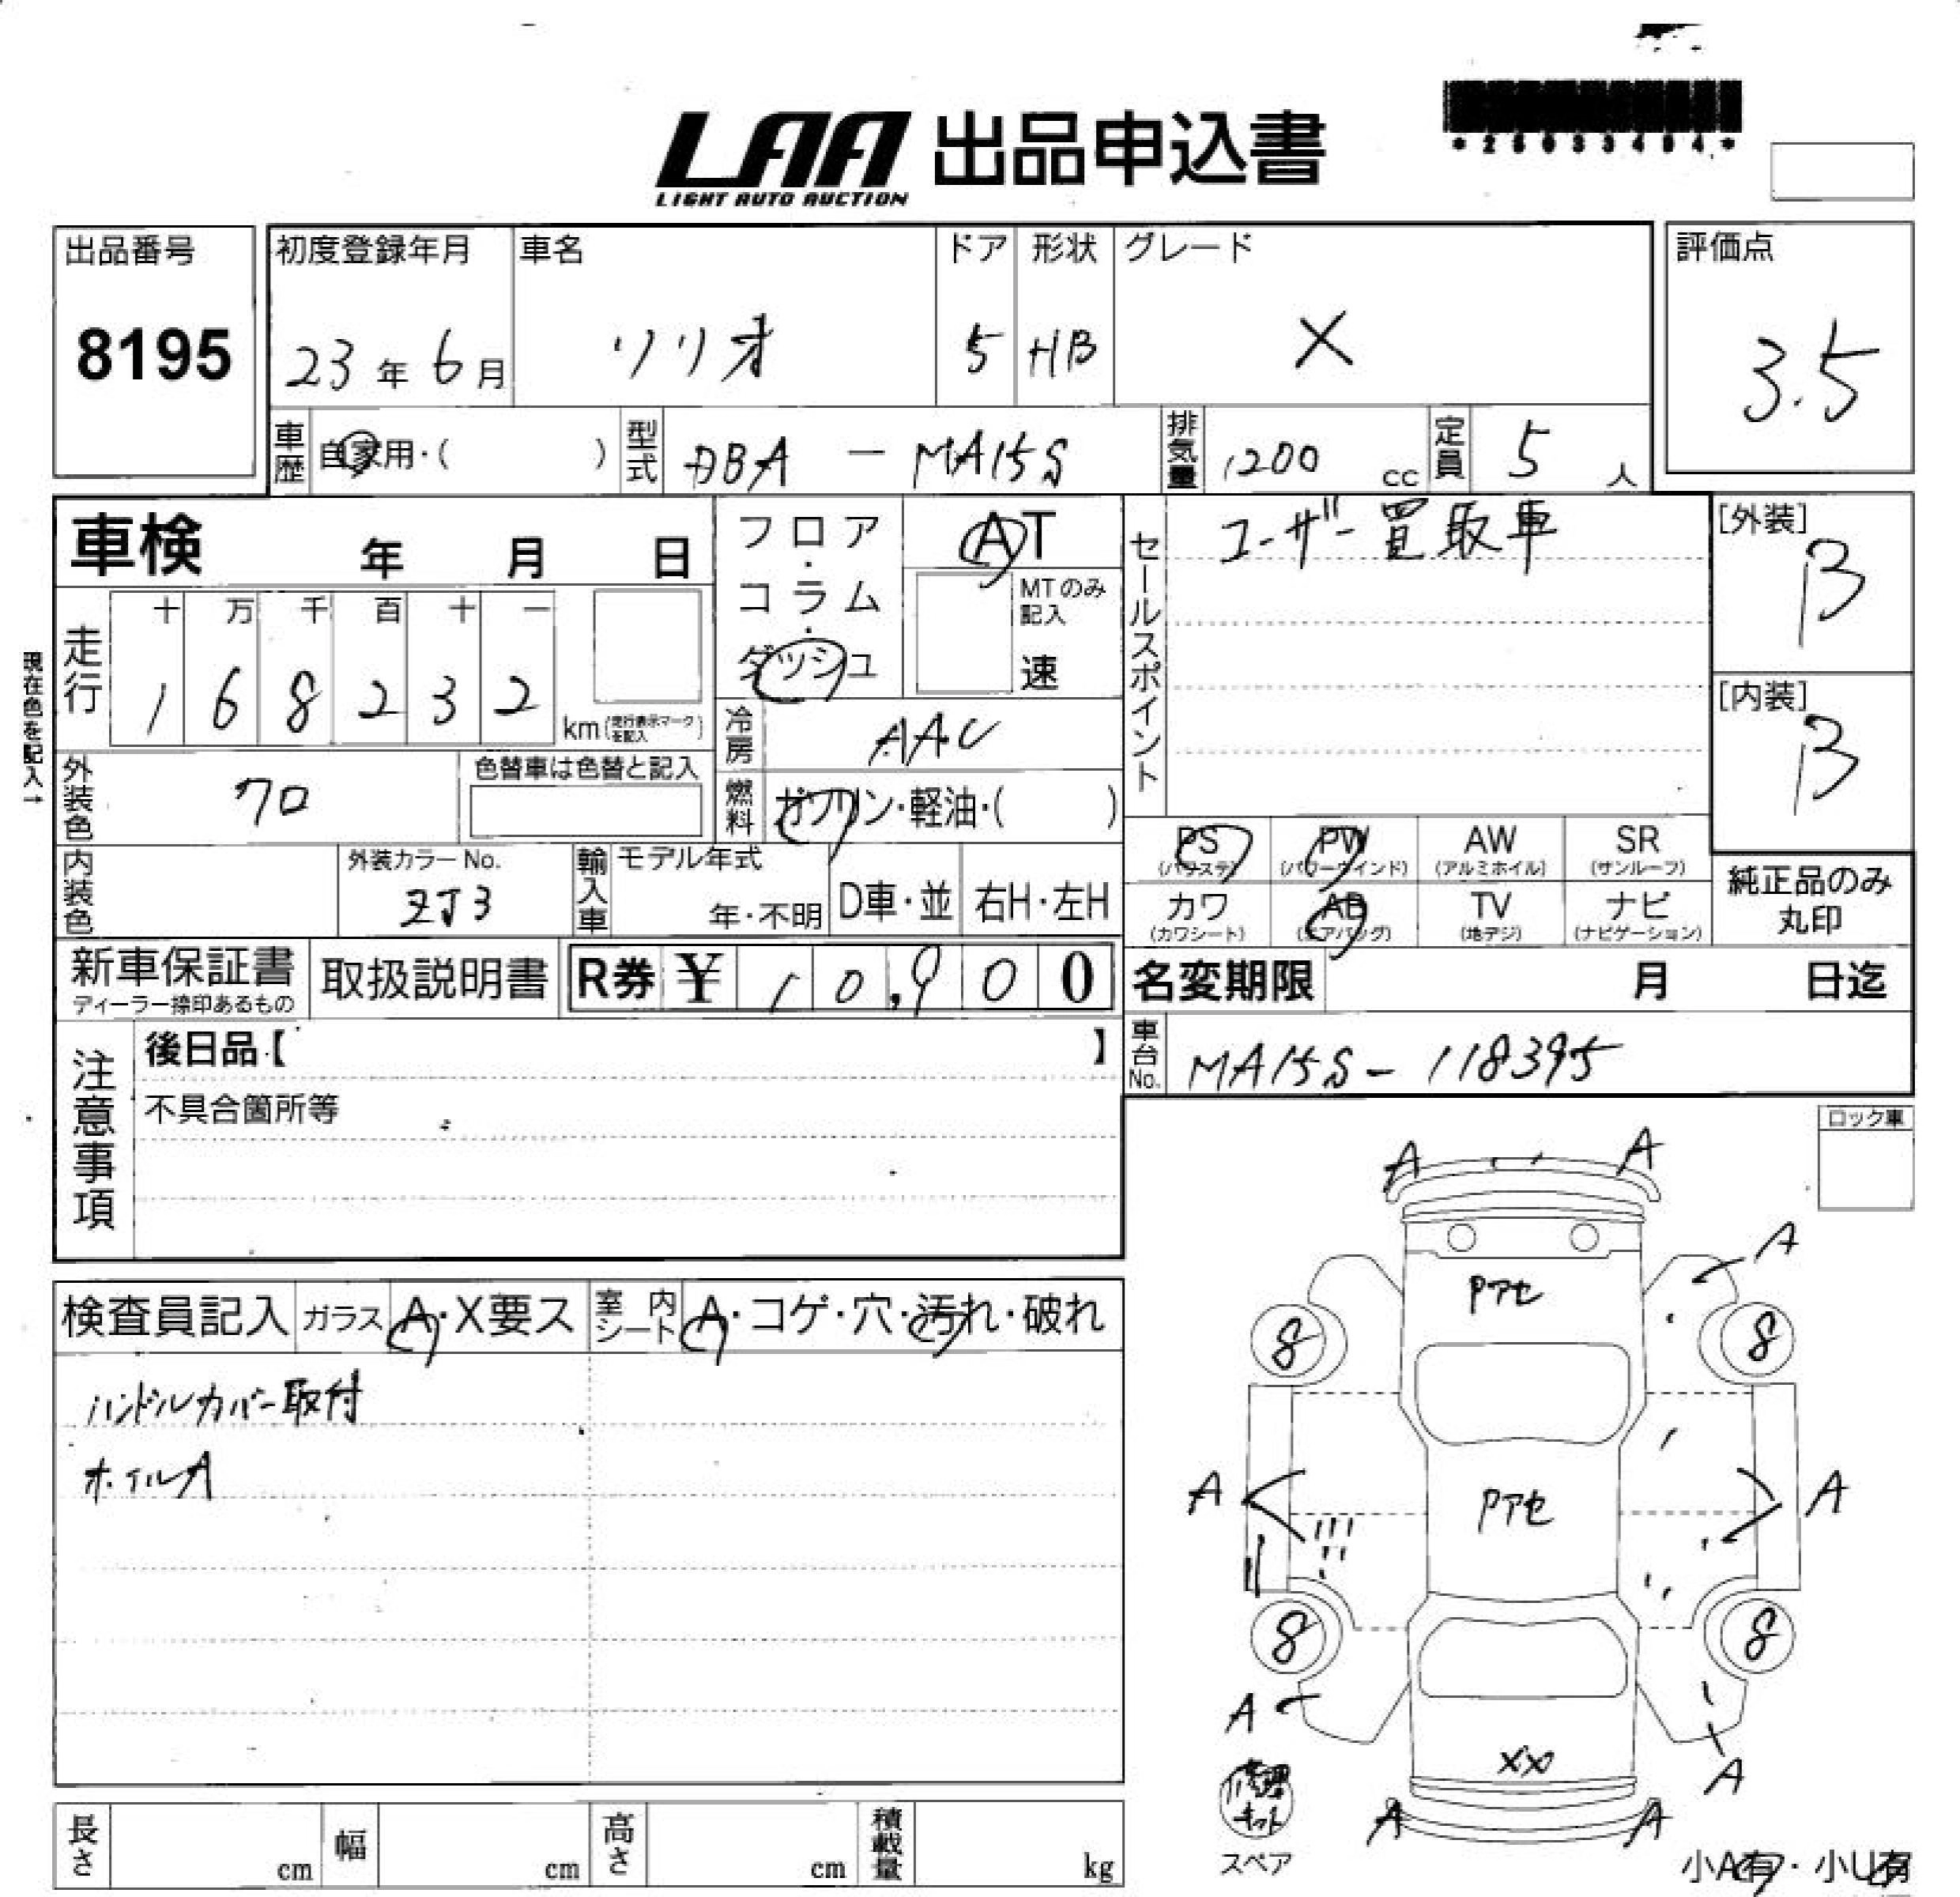 LAA 出品申込書
LIGHT AUTO AUCTION
出品番号
8195
初度登録年月
23年6月
車名
ソリオ
ドア
5
形状
HB
グレード
X
評価点
3.5
車歴
自家用・( )
型式
DBA － MA15S
排気量
1200 cc
定員
5人
車検 年 月 日
走行
十 万 千 百 十 一
1 6 8 2 3 2
km (走行表示マークを記入)
現在色を記入→
外装色
クロ
色替車は色替と記入
内装色
外装カラーNo.
ZJ3
輸入車
モデル年式
年・不明
D車・並
右H・左H
フロア・コラム・ダッシュ
AT
MTのみ記入
速
冷房
AAC
燃料
ガソリン・軽油・( )
セールスポイント
ユーザー買取車
[外装]
B
[内装]
B
PS (パワステ)
PW (パワーウインド)
AW (アルミホイル)
SR (サンルーフ)
カワ (カワシート)
AB (エアバッグ)
TV (地デジ)
ナビ (ナビゲーション)
純正品のみ
丸印
新車保証書
ディーラー捺印あるもの
取扱説明書
R券 ¥ 10,900
名変期限 月 日迄
車台No.
MA15S－118395
注意事項
後日品【 】
不具合箇所等
ロック車
検査員記入
ガラス A・X要ス
室内シート A・コゲ・穴・汚れ・破れ
ハンドルカバー取付
ホイルA
A A
A
Pアセ
8 8
A A
Pアセ
8 8
A
XX
A
修理キット
スペア
A A
小A有・小U有
長さ cm
幅 cm
高さ cm
積載量 kg